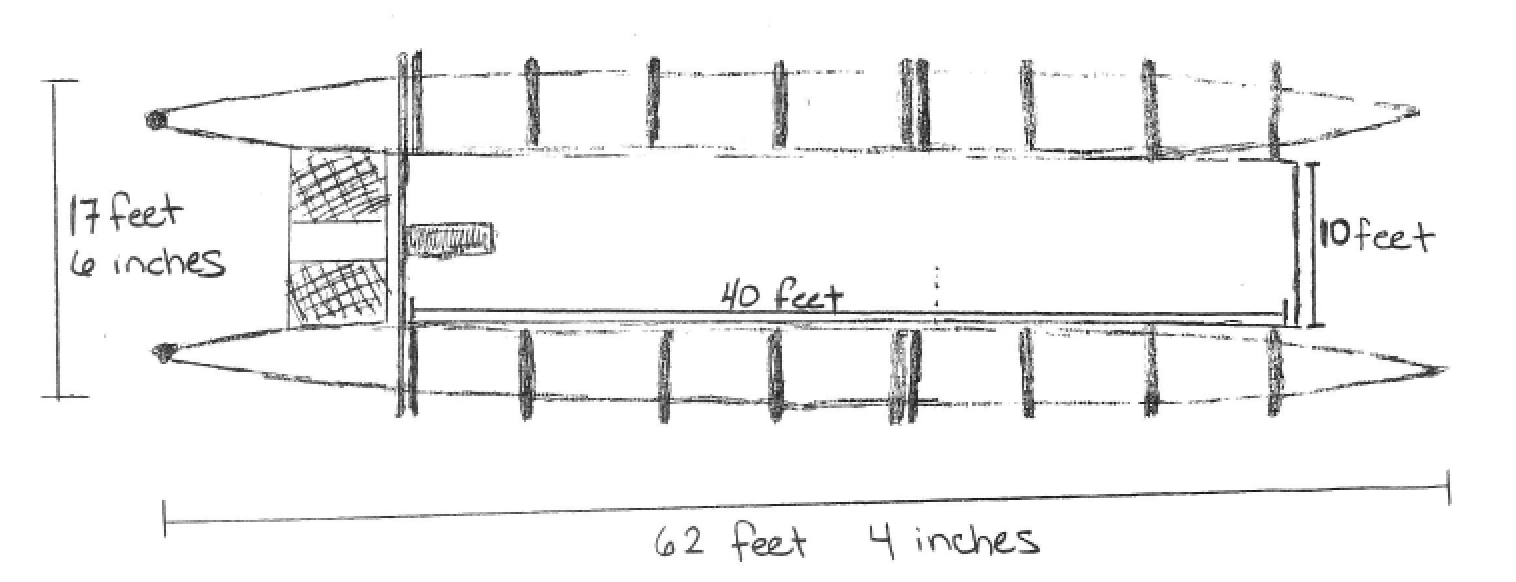 17 feet
6 inches
10 feet
40 feet
62 feet 4 inches